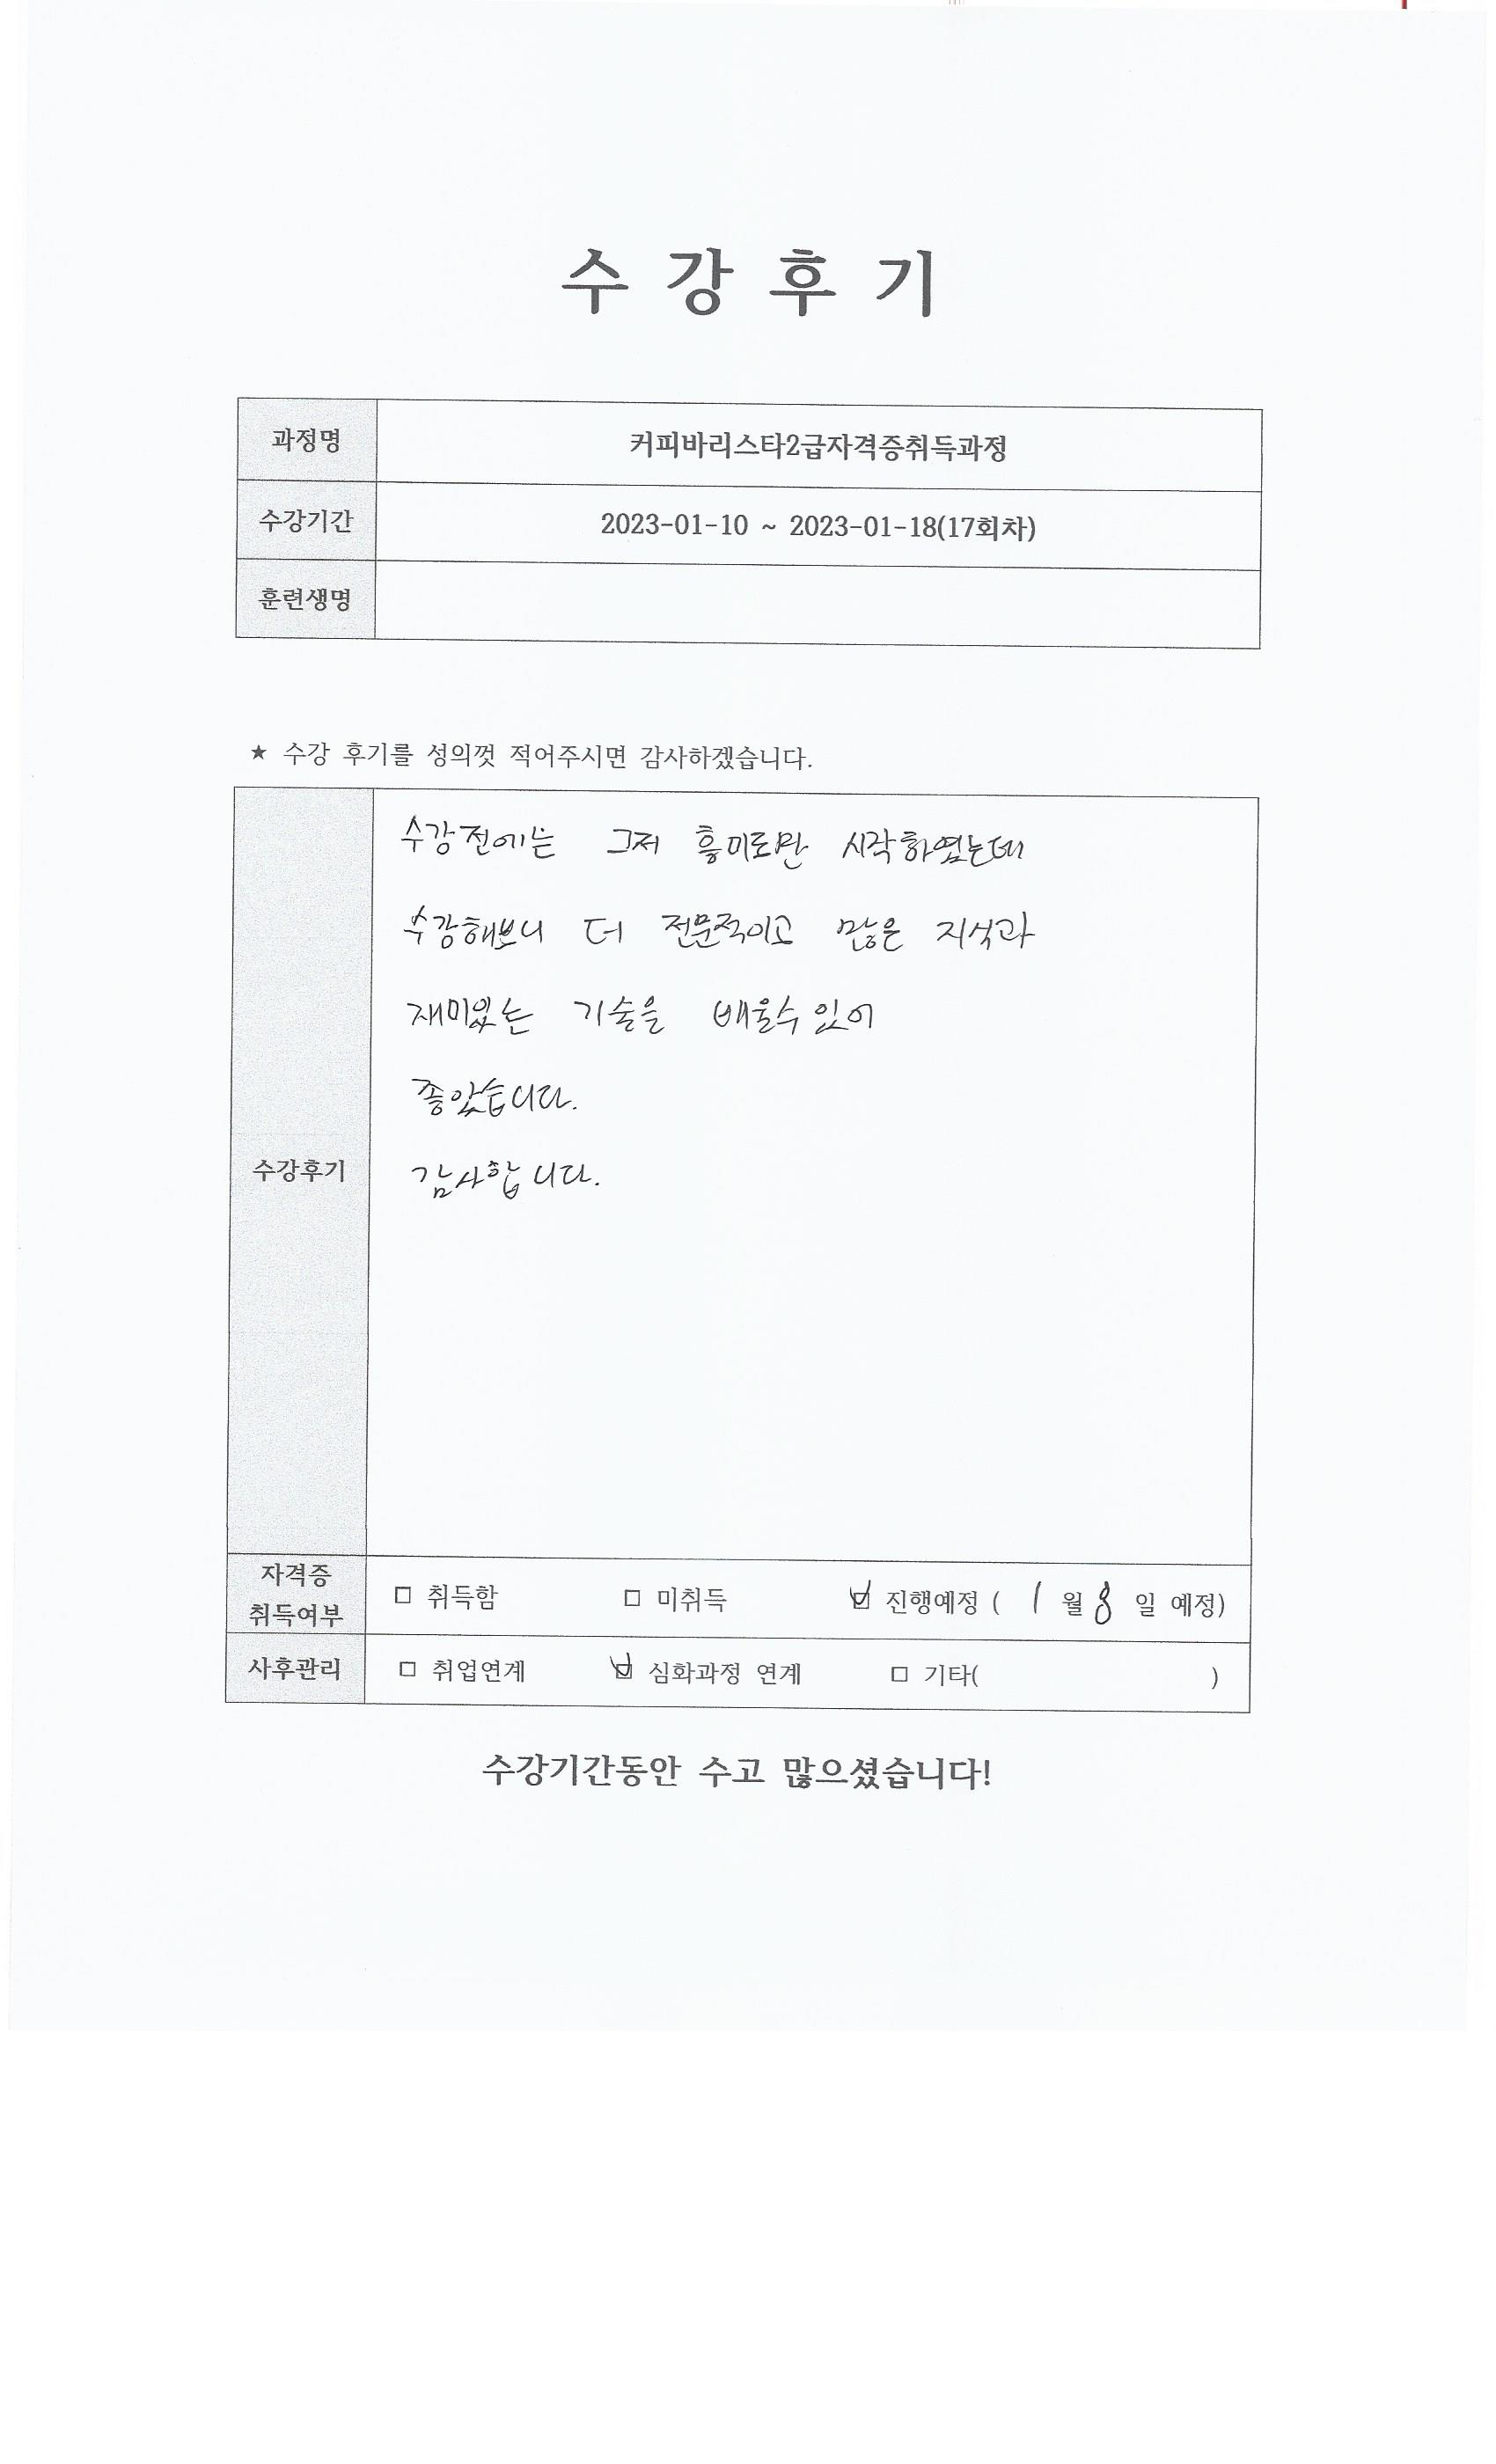 수 강 후 기
과정명 커피바리스타2급자격증취득과정
수강기간 2023-01-10 ~ 2023-01-18(17회차)
훈련생명
★ 수강 후기를 성의껏 적어주시면 감사하겠습니다.
수강후기
수강전에는 그저 흥미로만 시작하였는데
수강해보니 더 전문적이고 많은 지식과
재미있는 기술을 배울수있어
좋았습니다.
감사합니다.
자격증
취득여부
□ 취득함 □ 미취득 ☑ 진행예정 ( 1 월 8 일 예정)
사후관리 □ 취업연계 ☑ 심화과정 연계 □ 기타( )
수강기간동안 수고 많으셨습니다!